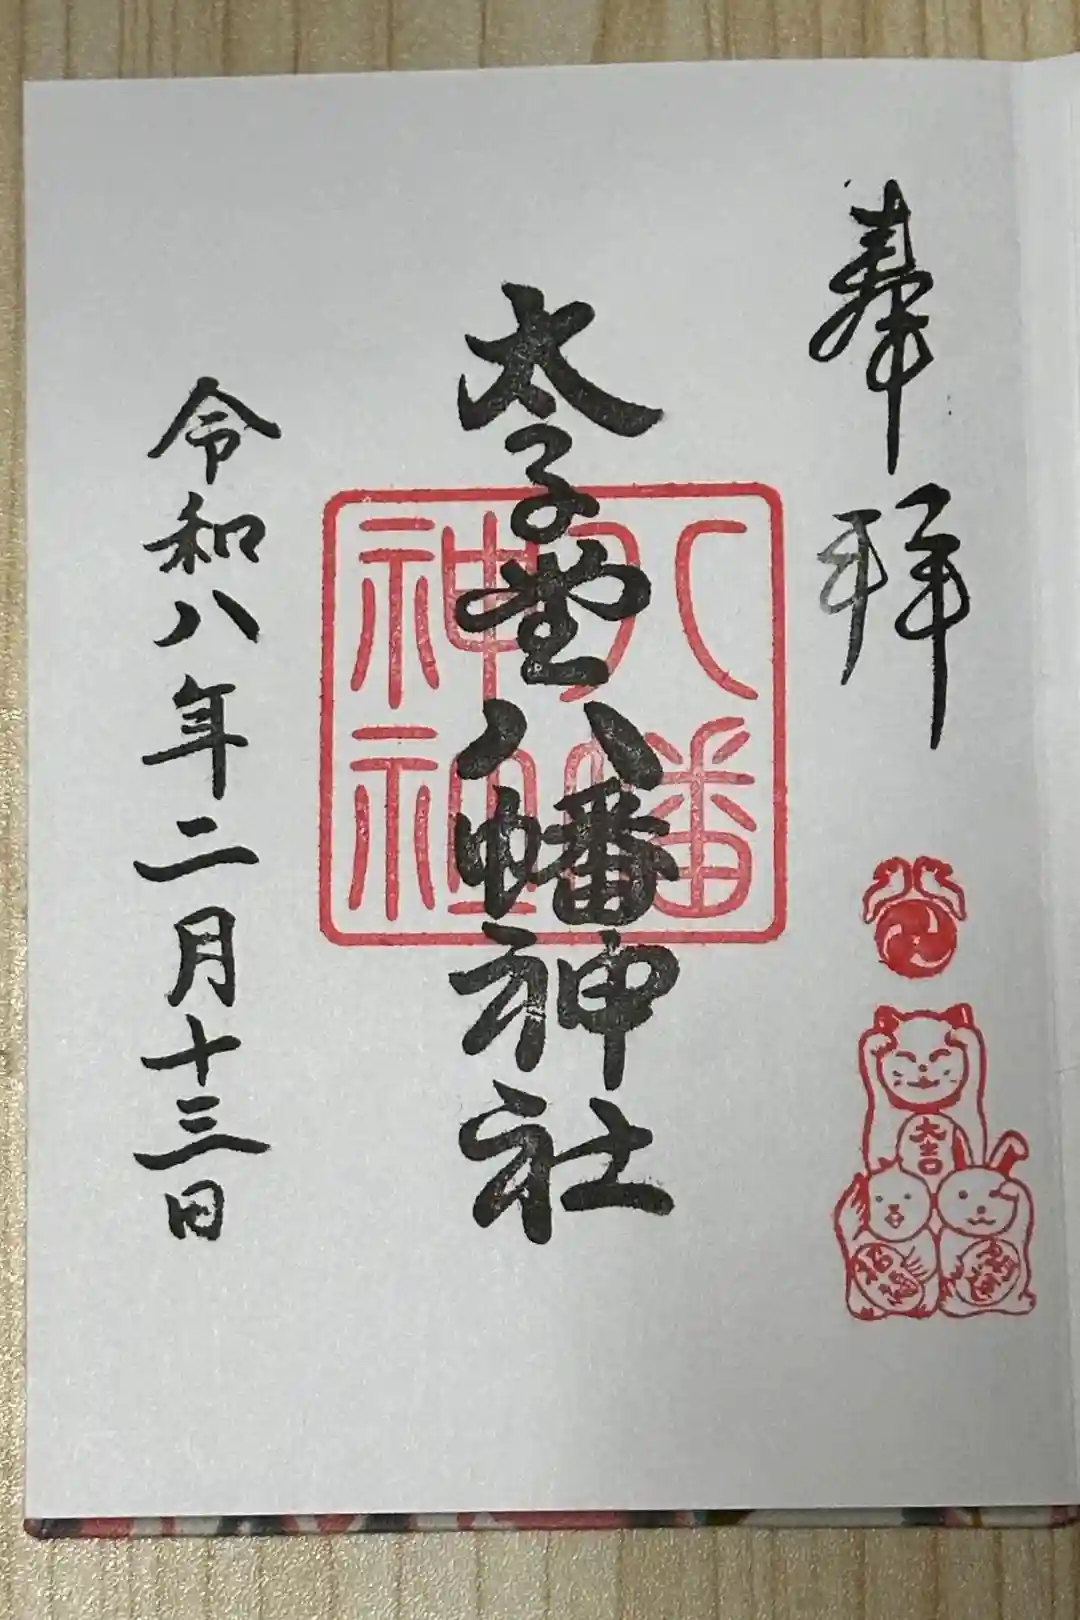 奉拝
大吉
招福
開運
太子堂八幡神社
八幡
神社
令和八年二月十三日